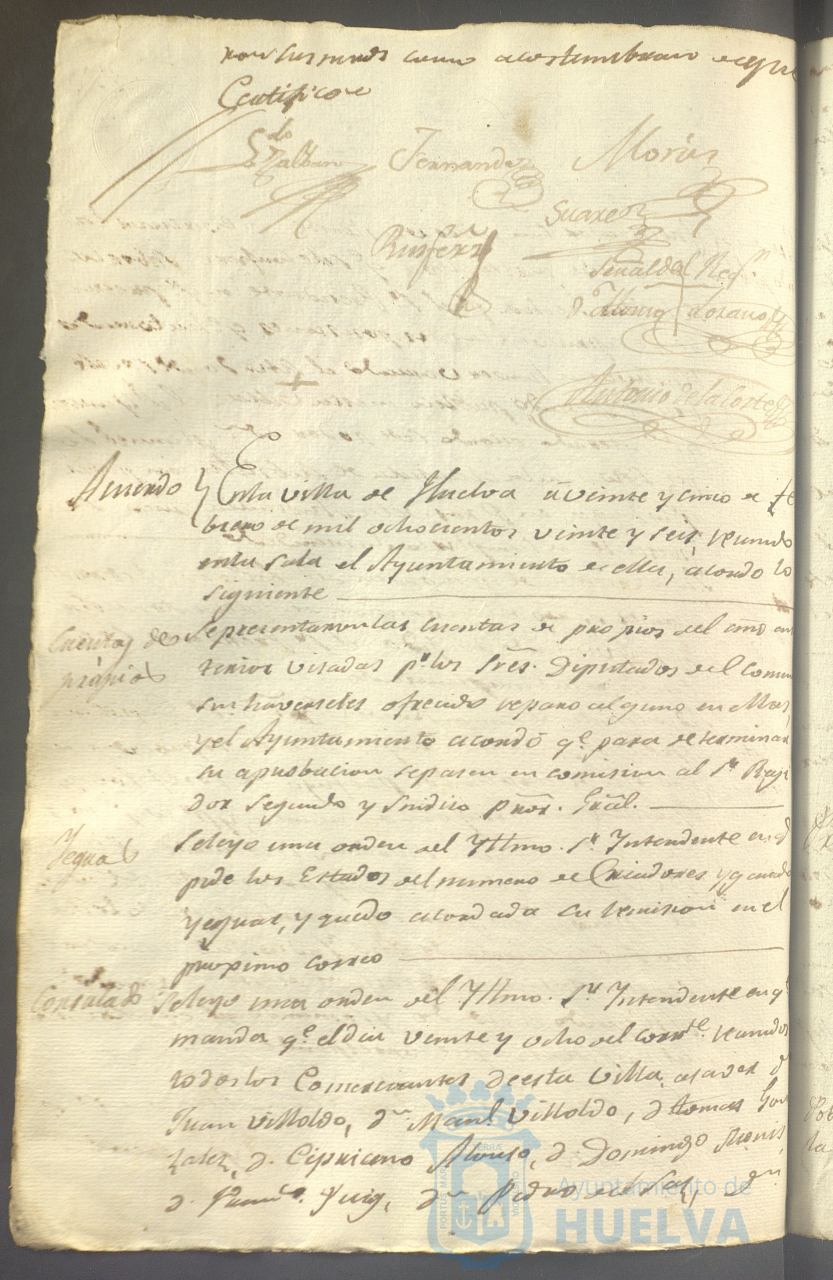 como acostumbran
Certifico
Fernandez Morón
Suarez
Ruifernz
Señal del Regr.
dn. Alonso Lorano
Antonio de la Corte
Acuerdo
En la villa de Huelva á veinte y cinco de fe
brero de mil ochocientos veinte y seis, reunido
en la sala el Ayuntamiento de ella, acordo lo
siguiente
Cuentas de
propios
Se presentaron las cuentas de propios del año an
terior visadas pr. los Sres. Diputados del comun
sin haverseles ofrecido reparo alguno en ellas,
y el Ayuntamiento acordó qe. para determinar
su aprobacion se pasen en comision al Sr. Regi
dor segundo y Sindico Pror. Gral.
Yeguas
Se leyo una orden del Yltmo. Sr. Intendente en q
pide los Estados del numero de Criadores y
yeguas, y quedó acordada su remision en el
proximo correo
Consulado
Se leyo una orden del Yltmo. Sr. Intendente en qe.
manda qe. el dia veinte y ocho del corrte. reunidos
todos los Comerciantes de esta villa, a saver dn
Juan Villoldo, dn. Manl. Villoldo, d. tomas Gon
zalez, d. Cipriano Alonso, d. Domingo
d. Puig, dn. Pedro dn
Ayuntamiento de
HUELVA